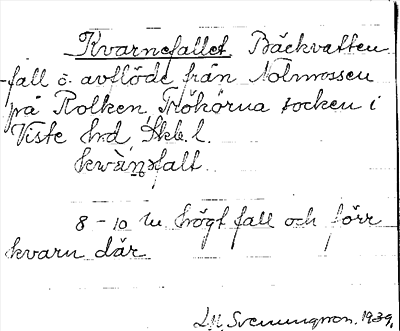 Kvarnefallet. Bäckvatten-
fall o. avflöde från Nolmossen
på Rolken, Flökörna socken i
Viste hrd, Skb. l.
kwà̄ṇəfalt
8-10 m högt fall och förr
kvarn där
Svenungsson. 1939.